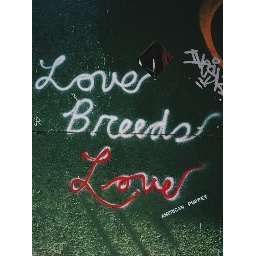 Love
Breeds
Love
AMERICAN PUPPET